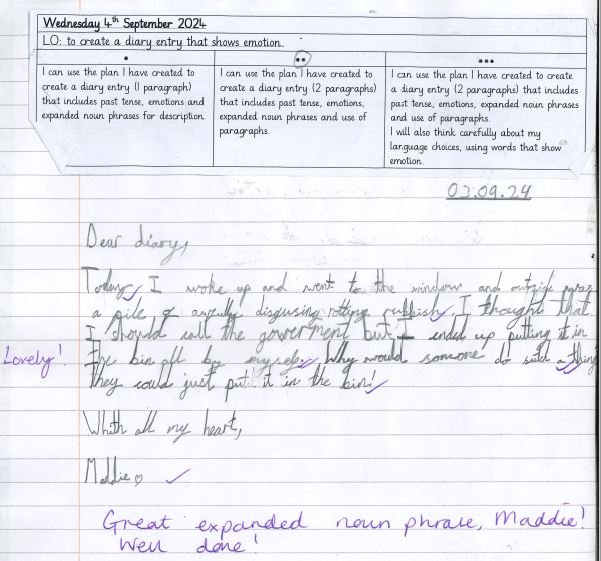 Wednesday 4th September 2024
LO: to create a diary entry that shows emotion.
*
I can use the plan I have created to
create a diary entry (1 paragraph)
that includes past tense, emotions and
expanded noun phrases for description.
**
I can use the plan I have created to
create a diary entry (2 paragraphs)
that includes past tense, emotions,
expanded noun phrases and use of
paragraphs.
***
I can use the plan I have created to create
a diary entry (2 paragraphs) that includes
past tense, emotions, expanded noun phrases
and use of paragraphs.
I will also think carefully about my
language choices, using words that show
emotion.
03.09.24
Dear diary,
Today, I woke up and went to the window and outside was
a pile of awfully disgusing rotting rubbish. I thought that
I should call the goverment but I ended up putting it in
Lovely!
the bin all by my self. Why would someone do such a thing
they could just put it in the bin!
Whith all my heart,
Maddie ♡
Great expanded noun phrase, Maddie!
Well done!